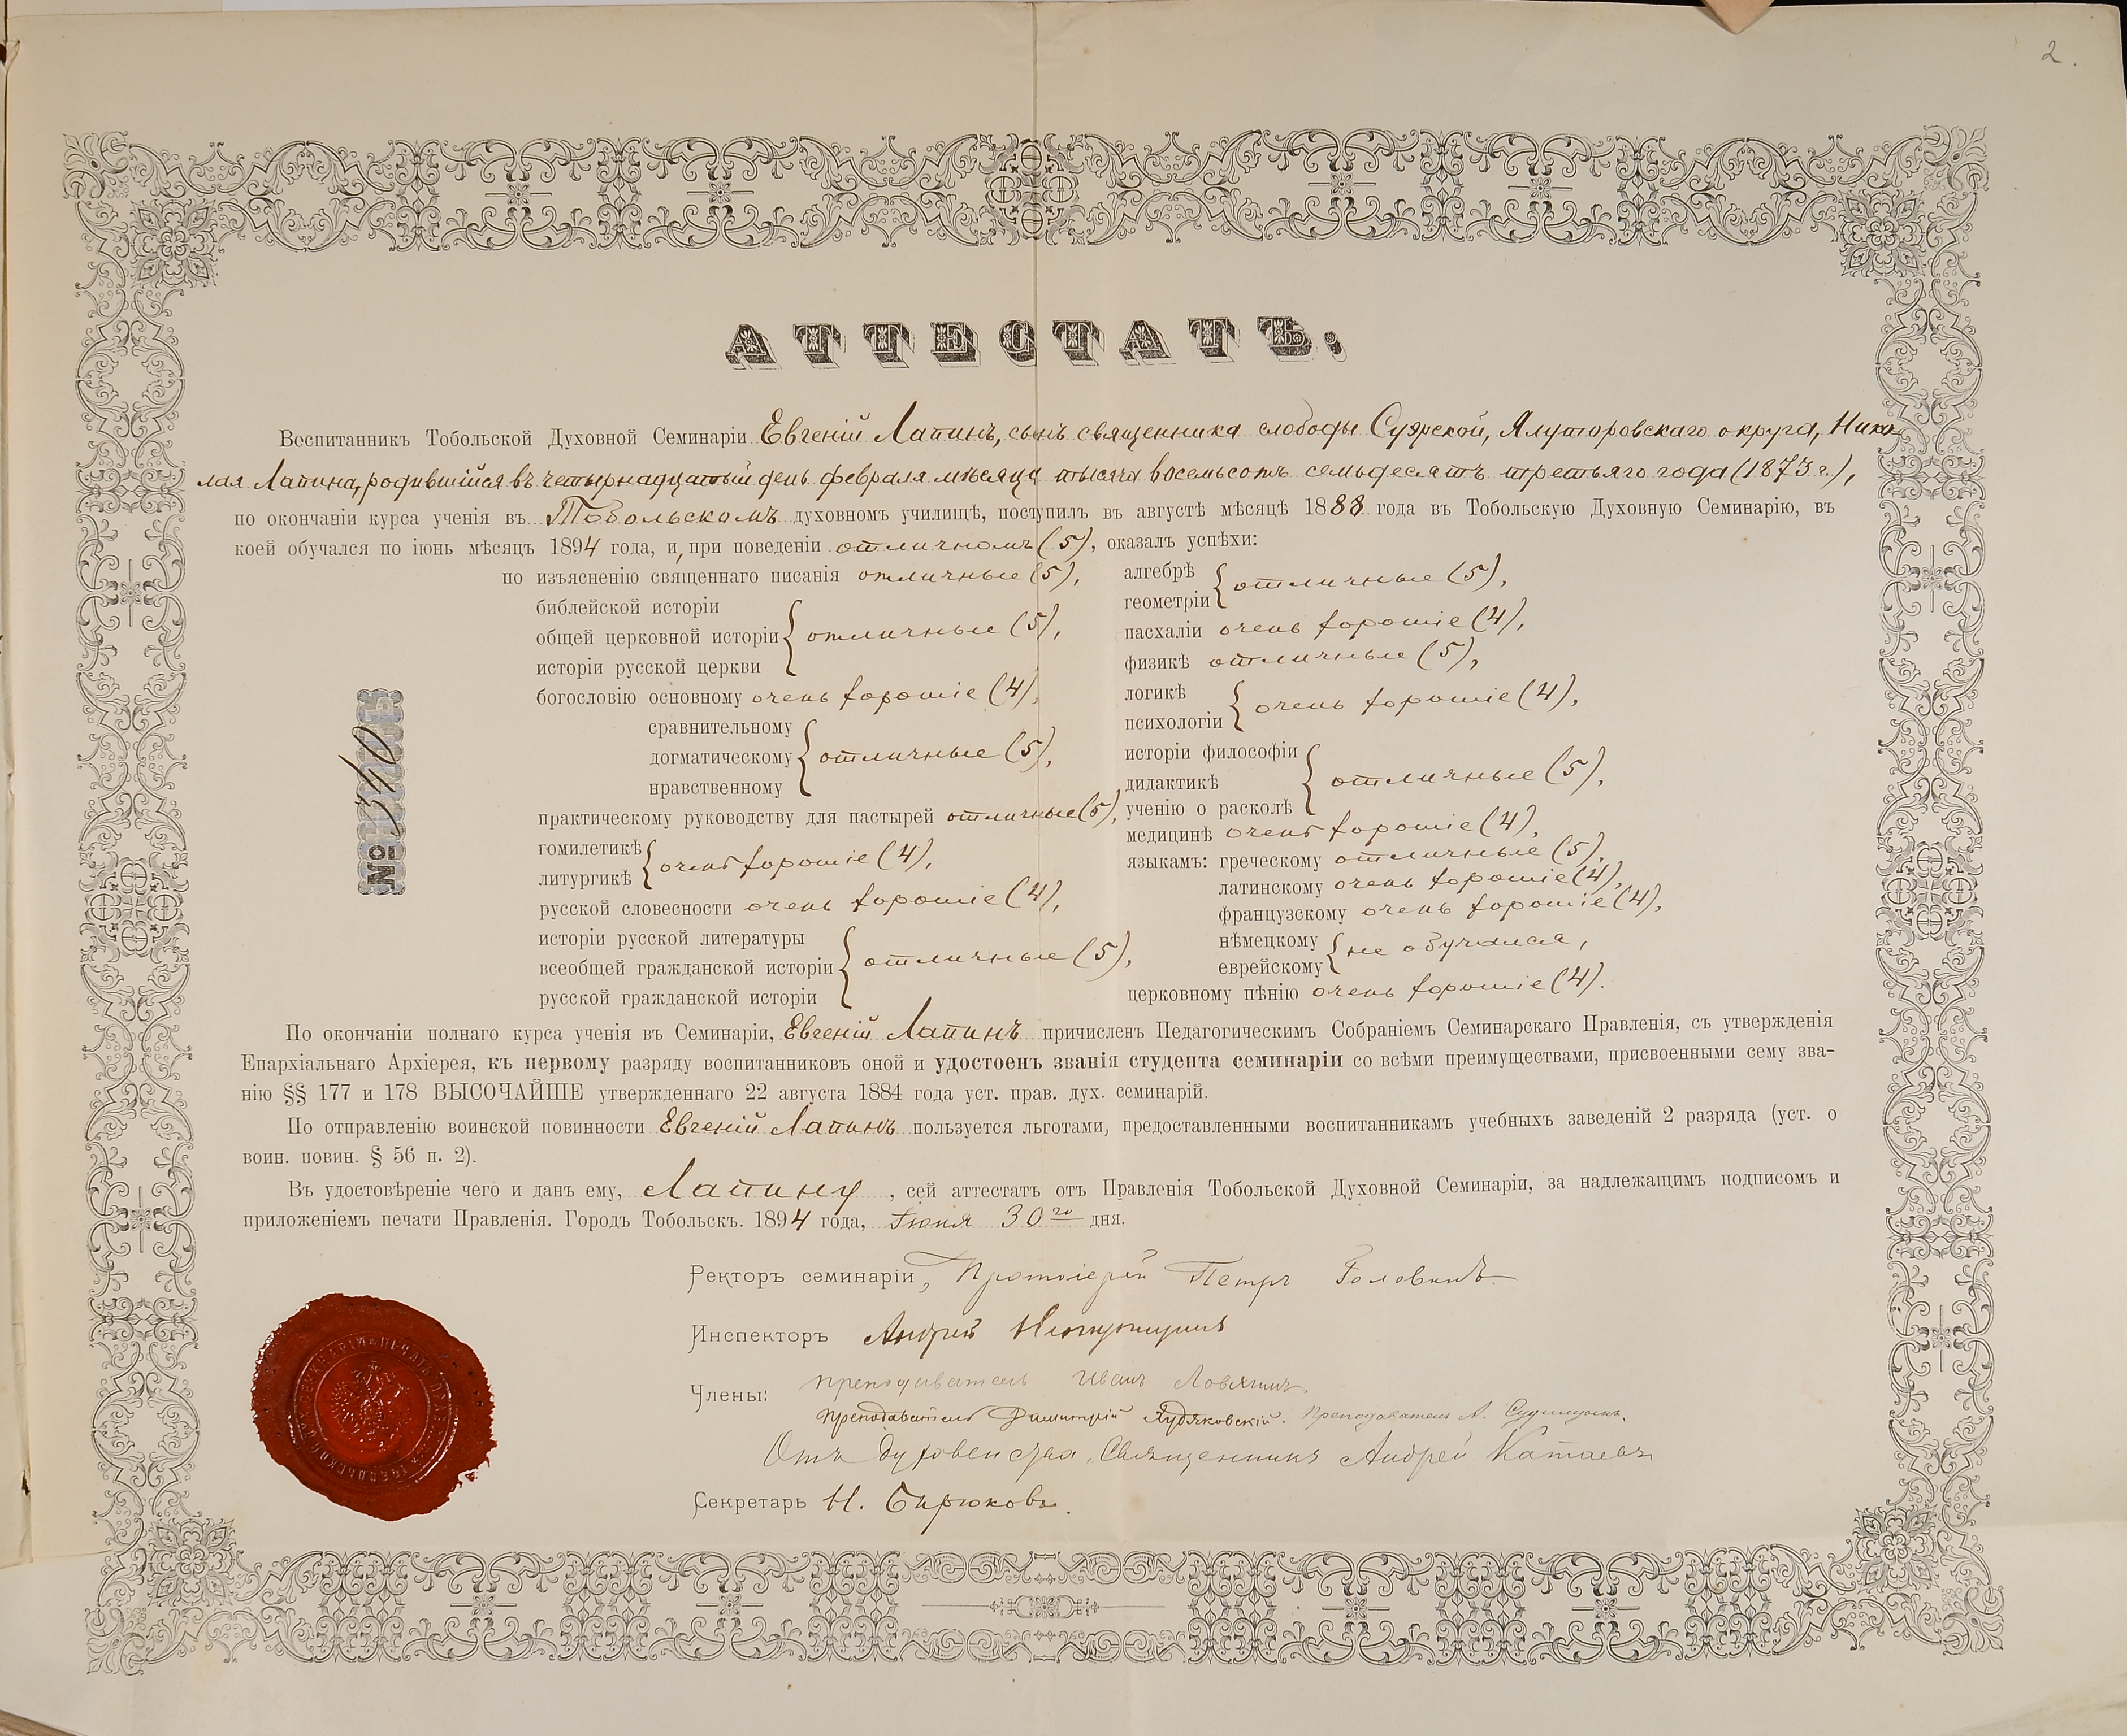 2.
АТТЕСТАТЪ.
Воспитанникъ Тобольской Духовной Семинаріи Евгеній Лапинъ, сынъ священника слободы Суерской, Ялуторовскаго округа, Нико-
лая Лапина, родившійся въ четырнадцатый день февраля мѣсяца тысяча восемьсотъ семьдесятъ третьяго года (1873 г.),
по окончаніи курса ученія въ Тобольскомъ духовномъ училищѣ, поступилъ въ августѣ мѣсяцѣ 1888 года въ Тобольскую Духовную Семинарію, въ
коей обучался по іюнь мѣсяцъ 1894 года, и, при поведеніи отличномъ (5), оказалъ успѣхи:
по изъясненію священнаго писанія отличные (5),
библейской исторіи
общей церковной исторіи отличные (5),
исторіи русской церкви
богословію основному очень хорошіе (4),
сравнительному
догматическому отличные (5),
нравственному
практическому руководству для пастырей отличные (5),
гомилетикѣ
литургикѣ очень хорошіе (4),
русской словесности очень хорошіе (4),
исторіи русской литературы
всеобщей гражданской исторіи отличные (5),
русской гражданской исторіи
алгебрѣ
геометріи отличные (5),
пасхаліи очень хорошіе (4),
физикѣ отличные (5),
логикѣ
психологіи очень хорошіе (4),
исторіи философіи
дидактикѣ отличные (5),
ученію о расколѣ
медицинѣ очень хорошіе (4),
языкамъ: греческому отличные (5),
латинскому очень хорошіе (4),
французскому очень хорошіе (4),
нѣмецкому
еврейскому не обучался,
церковному пѣнію очень хорошіе (4).
№ 340
По окончаніи полнаго курса ученія въ Семинаріи, Евгеній Лапинъ причисленъ Педагогическимъ Собраніемъ Семинарскаго Правленія, съ утвержденія
Епархіальнаго Архіерея, къ первому разряду воспитанниковъ оной и удостоенъ званія студента семинаріи со всѣми преимуществами, присвоенными сему зва-
нію §§ 177 и 178 ВЫСОЧАЙШЕ утвержденнаго 22 августа 1884 года уст. прав. дух. семинарій.
По отправленію воинской повинности Евгеній Лапинъ пользуется льготами, предоставленными воспитанникамъ учебныхъ заведеній 2 разряда (уст. о
воин. повин. § 56 п. 2).
Въ удостовѣреніе чего и данъ ему, Лапину, сей аттестатъ отъ Правленія Тобольской Духовной Семинаріи, за надлежащимъ подписомъ и
приложеніемъ печати Правленія. Городъ Тобольскъ. 1894 года, Іюня 30го дня.
Ректоръ семинаріи, Протоіерей Петръ Головинъ.
Инспекторъ Андрей
Члены: преподаватель Иванъ Ловягинъ
Преподаватель Димитрій Худяковскій. Преподаватель А.
Отъ духовенства, Священникъ Андрей Катаевъ
Секретарь Н. Бирюковъ.